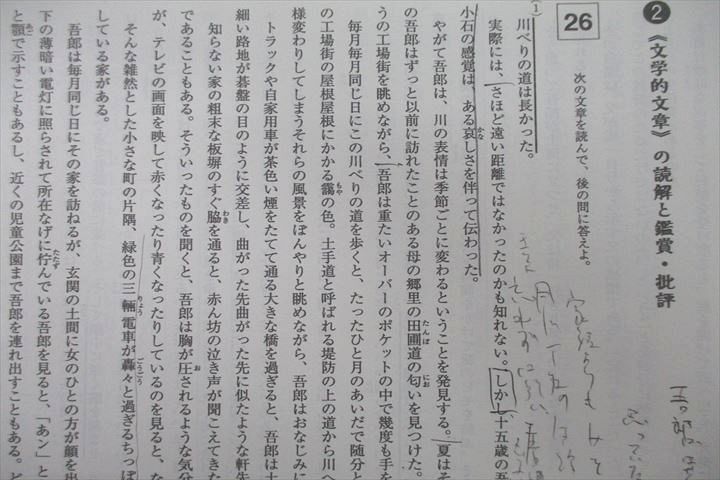 ❷《文学的文章》の読解と鑑賞・批評
26
次の文章を読んで、後の問に答えよ。
(1)
川べりの道は長かった。
実際には、さほど遠い距離ではなかったのかも知れない。しかし十五歳の吾
小石の感覚は、ある哀しさを伴って伝わった。
やがて吾郎は、川の表情は季節ごとに変わるということを発見する。夏はそ
の吾郎はずっと以前に訪れたことのある母の郷里の田圃道の匂いを見つけた。
うの工場街を眺めながら、吾郎は重たいオーバーのポケットの中で幾度も手を
毎月毎月同じ日にこの川べりの道を歩くと、たったひと月のあいだで随分と
の工場街の屋根屋根にかかる靄の色。土手道と呼ばれる堤防の上の道から川へ
様変わりしてしまうそれらの風景をぼんやりと眺めながら、吾郎はおなじみに
トラックや自家用車が茶色い煙をたてて通る大きな橋を過ぎると、吾郎は土
細い路地が碁盤の目のように交差し、曲がった先曲がった先に似たような軒先
知らない家の粗末な板塀のすぐ脇を通ると、赤ん坊の泣き声が聞こえてきた
であることもある。そういったものを聞くと、吾郎は胸が圧されるような気分
が、テレビの画面を映して赤くなったり青くなったりしているのを見ると、な
そんな雑然とした小さな町の片隅、緑色の三輛電車が轟々と過ぎるちっぽ
している家がある。
吾郎は毎月同じ日にその家を訪ねるが、玄関の土間に女のひとの方が顔を出
下の薄暗い電灯に照らされて所在なげに佇んでいる吾郎を見ると、「あン」と
と顎で示すこともあるし、近くの児童公園まで吾郎を連れ出すこともある。ど